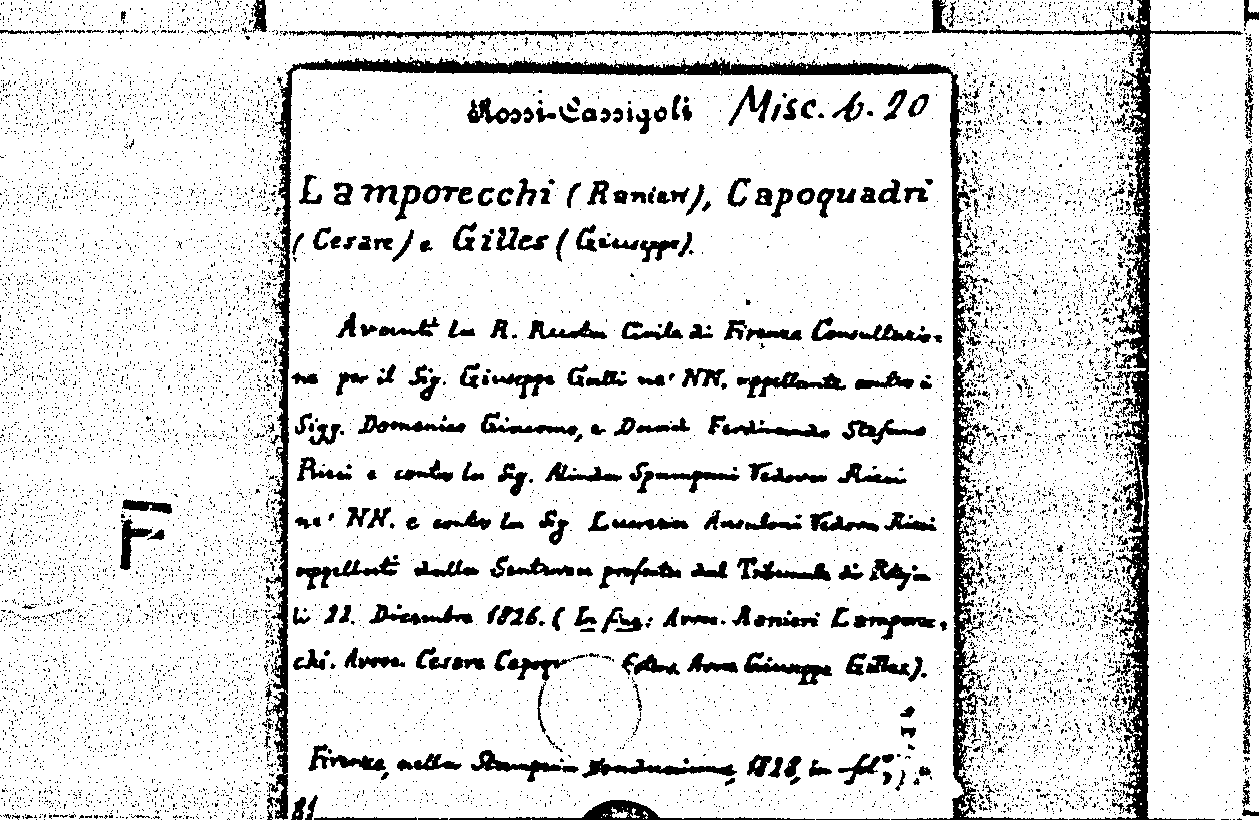 Rossi-Cassigoli Misc. b. 20
Lamporecchi (Ranieri), Capoquadri
(Cesare) e Gilles (Giuseppe).
Avanti la R. Ruota Civile di Firenze Consultazio-
ne per il Sig. Giuseppe Galli ne' NN. appellante contro i
Sigg. Domenico Giacomo, e David Ferdinando Stefano
Ricci e contro la Sig. Alinda Spampani Vedova Ricci
ne' NN. e contro la Sig. Lucrezia Ansaloni Vedova Ricci
appellati dalla Sentenza proferita dal Tribunale di
li 22. Dicembre 1826. (In fine: Avvo. Ranieri Lampore-
chi. Avvo. Cesare Avvo. Giuseppe Gilles).
Firenze, nella Stamperia 1828, in
81
F